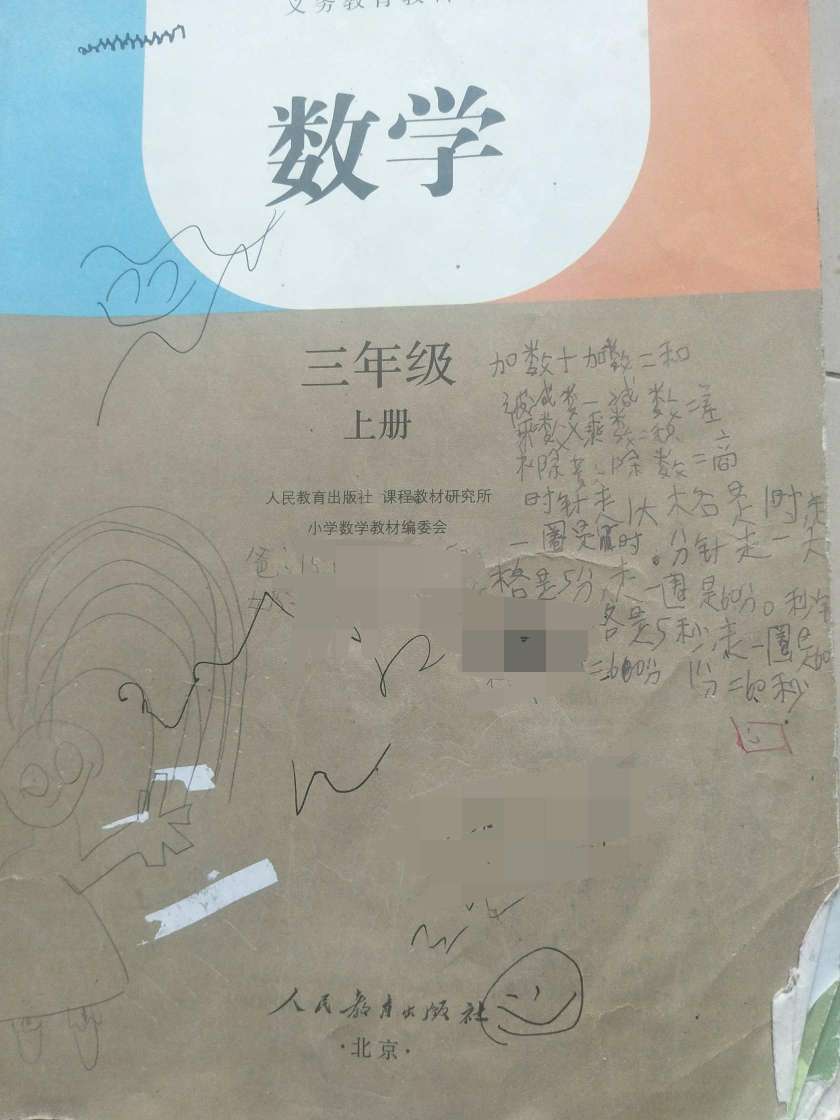 义务教育教科
数学
三年级
上册
人民教育出版社 课程教材研究所
小学数学教材编委会
加数+加数=和
被减数-减数=差
乘数×乘数=积
除数=商
时针走1大格是1时走
一圈是 时。分针走一大
格是5分走一圈是60分。秒
各是5秒走一圈
分 1分=60秒
爸:151
人民教育出版社
·北京·